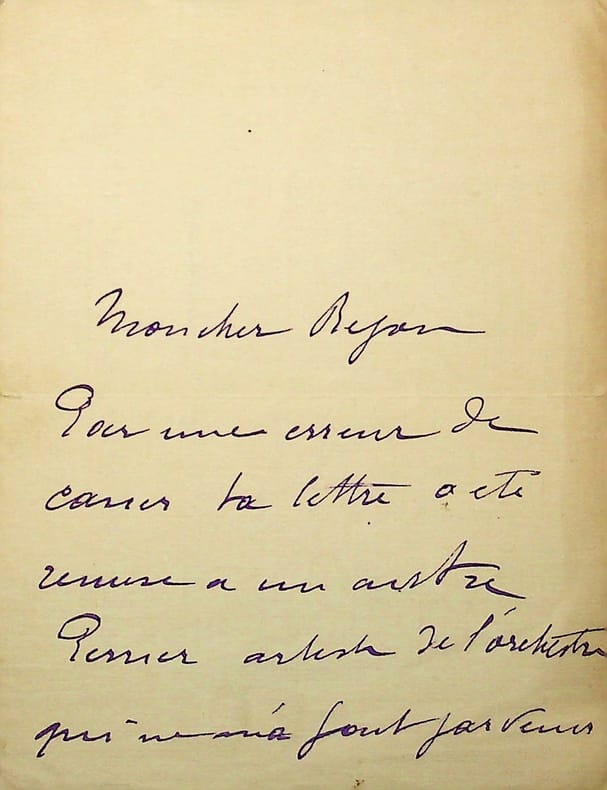 Mon cher Bejan
Par une erreur de
casier ta lettre a ete
remise a un autre
Perrier artiste de l'orchestre
qui ne m'a fait parvenir